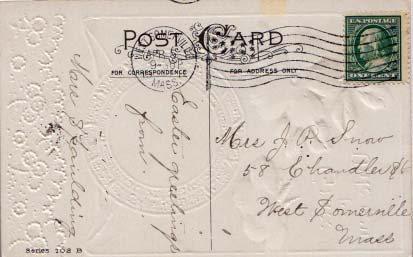 POST CARD
FOR CORRESPONDENCE
FOR ADDRESS ONLY
U.S. POSTAGE
ONE CENT
MASS
Easter greetings
from.
Mrs J. P. Snow
58 Chandler St
West Somerville
Mass
Series 102 B